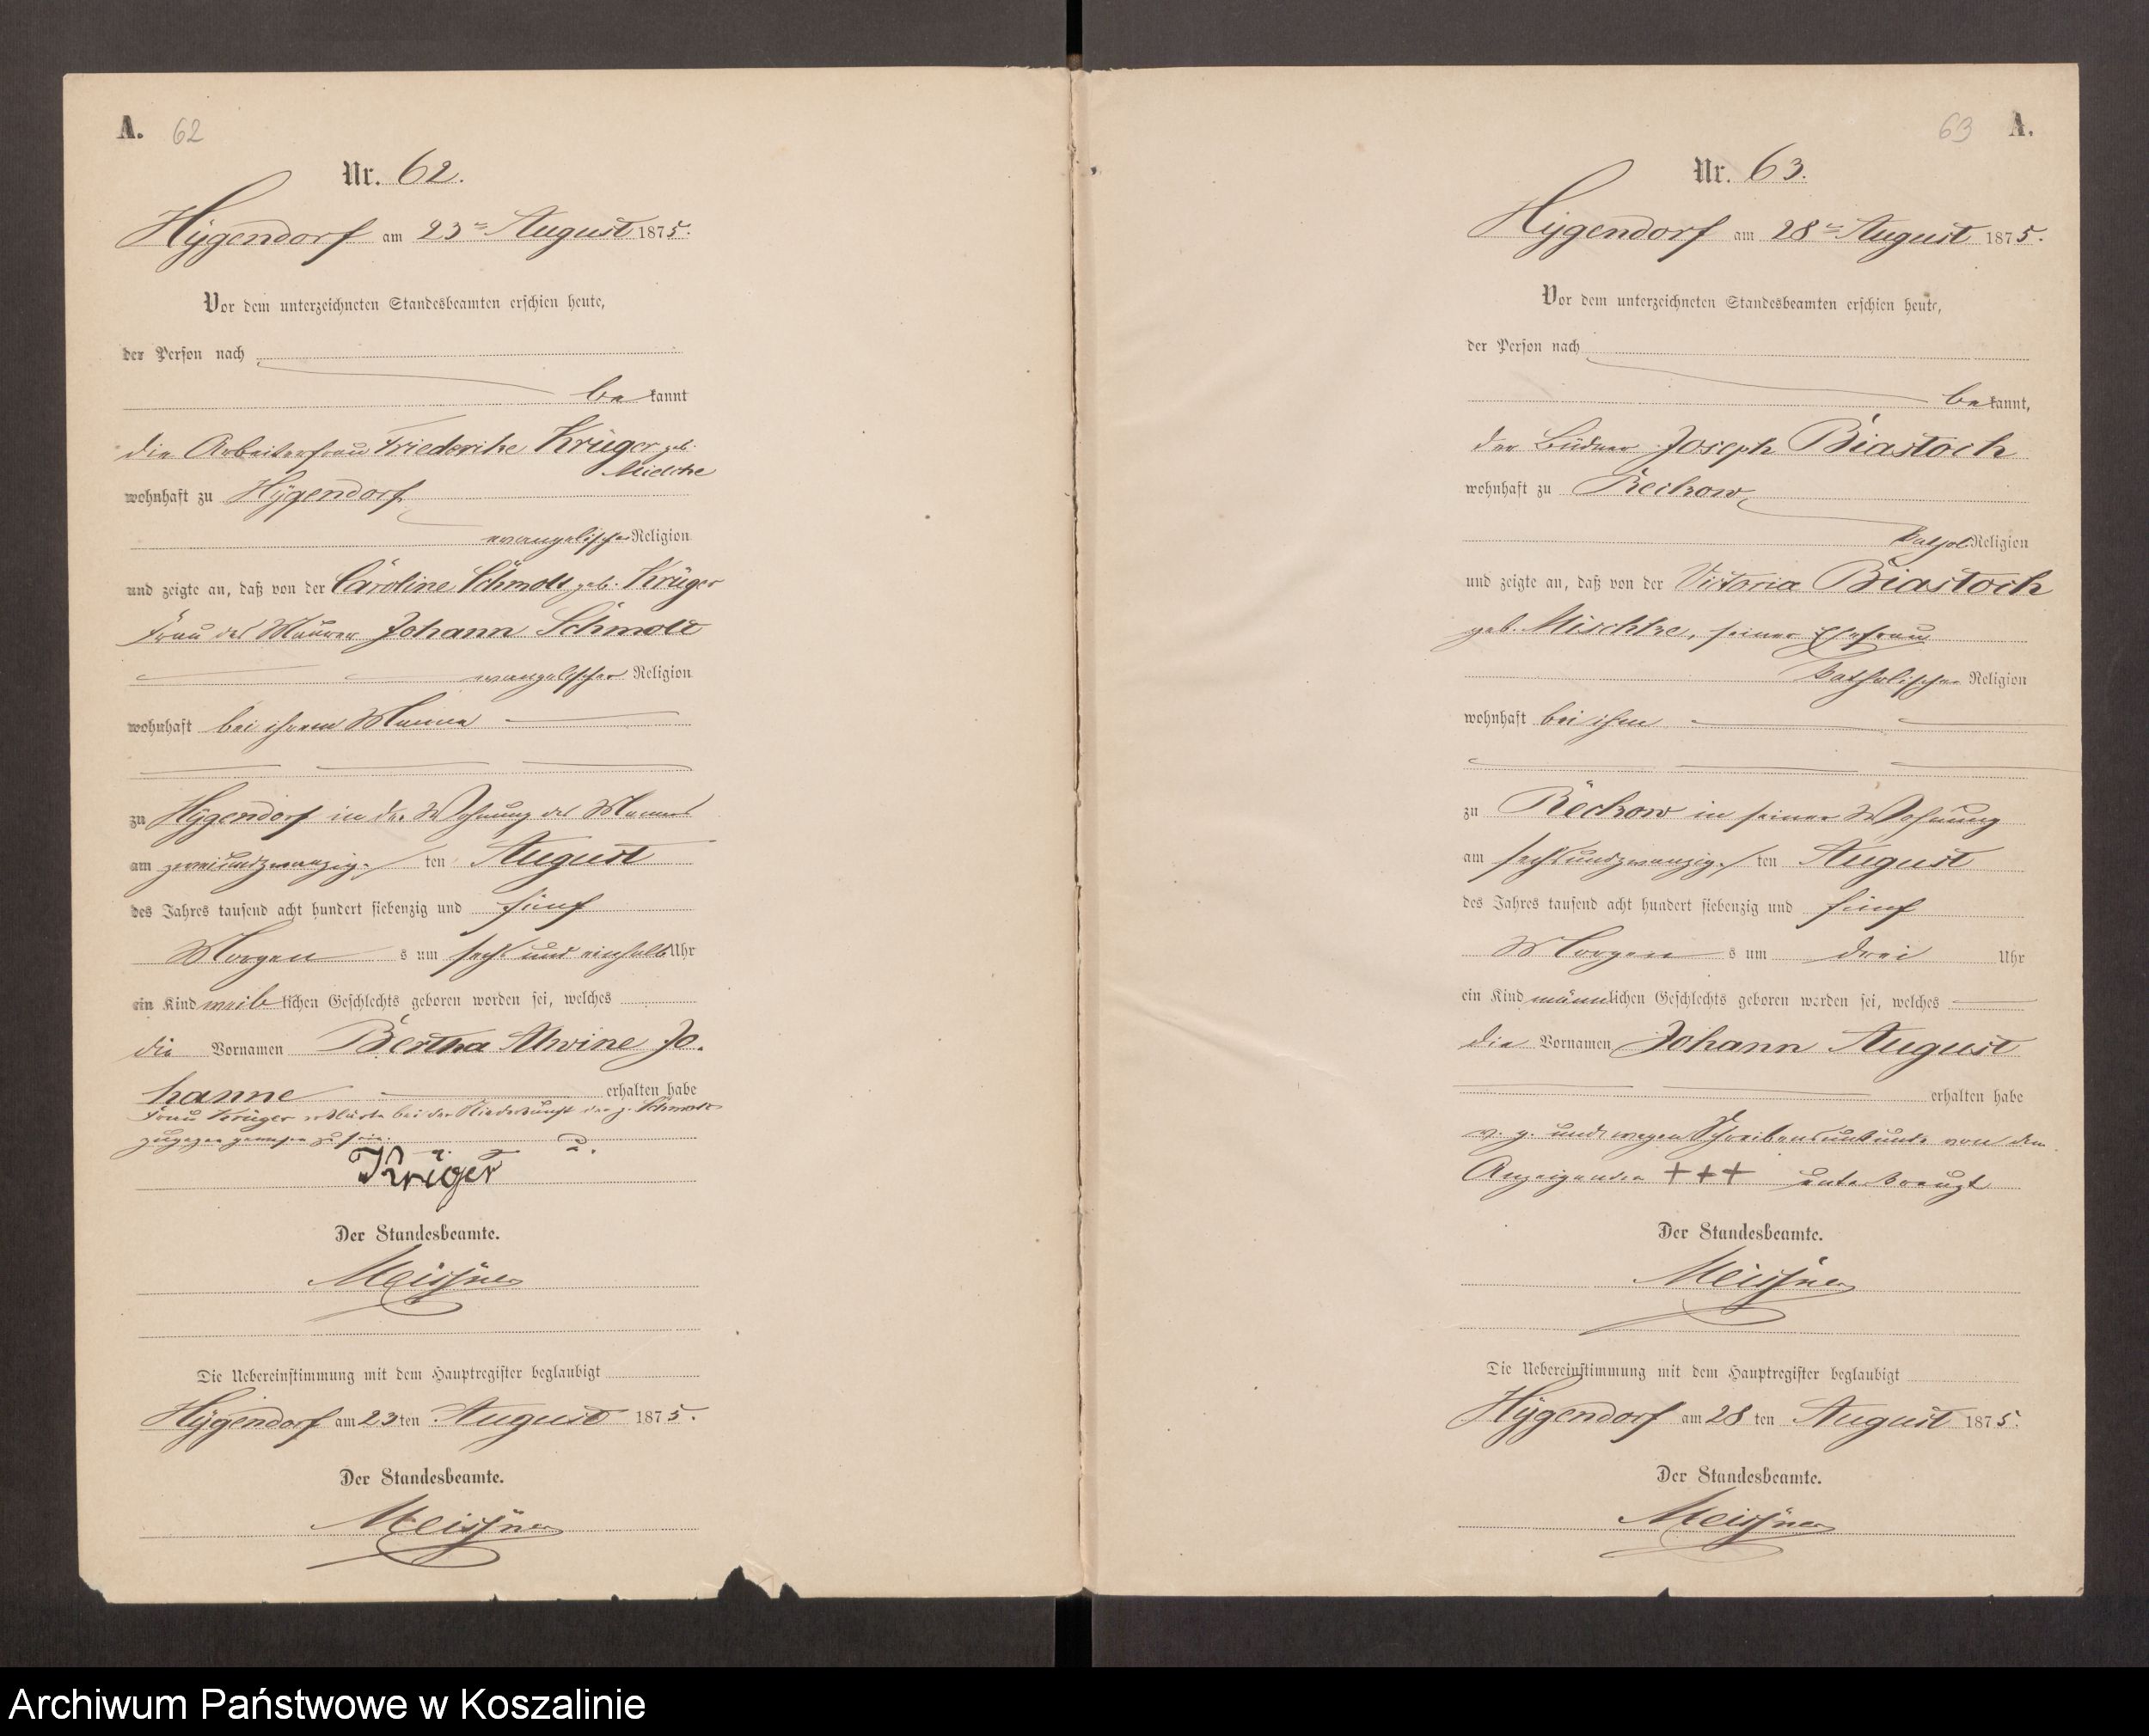 A. 62
Nr. 62.
Hÿgendorf am 23ten August 1875.
Vor dem unterzeichneten Standesbeamten erschien heute,
der Person nach
bekannt
die Arbeiterfrau Friederike Krüger geb.
Mielcke
wohnhaft zu Hÿgendorf
evangelischer Religion
und zeigte an, daß von der Caroline Schmolt geb. Krüger
Frau des Maurer Johann Schmolt
evangelischer Religion
wohnhaft bei ihrem Manne
zu Hÿgendorf in der Wohnung des Mannes
am zweiundzwanzig ten August
des Jahres tausend acht hundert siebenzig und fünf
Morgen s um sechs und einhalb Uhr
ein Kind weiblichen Geschlechts geboren worden sei, welches
die Vornamen Bertha Alwine Jo-
hanne erhalten habe
Frau Krüger erklärte bei der Niederkunft der p. Schmolt
zugegen gewesen zu sein.
v. g. u.
Kriger
Der Standesbeamte.
Meissner
Die Uebereinstimmung mit dem Hauptregister beglaubigt
Hÿgendorf am 23ten August 1875.
Der Standesbeamte.
Meissner
63 A.
Nr. 63.
Hÿgendorf am 28ten August 1875.
Vor dem unterzeichneten Standesbeamten erschien heute,
der Person nach
bekannt,
der Büdner Joseph Biastoch
wohnhaft zu Reckow
kathol. Religion
und zeigte an, daß von der Victoria Biastoch
geb. Mischke, seiner Ehefrau
katholischer Religion
wohnhaft bei ihm
zu Reckow in seiner Wohnung
am sechsundzwanzig ten August
des Jahres tausend acht hundert siebenzig und fünf
Morgen s um drei Uhr
ein Kind männlichen Geschlechts geboren worden sei, welches
die Vornamen Johann August
erhalten habe
v. g. und wegen Schreibensunkunde von dem
Anzeigenden +++ unterkreuzt
Der Standesbeamte.
Meissner
Die Uebereinstimmung mit dem Hauptregister beglaubigt
Hÿgendorf am 28 ten August 1875.
Der Standesbeamte.
Meissner
Archiwum Państwowe w Koszalinie